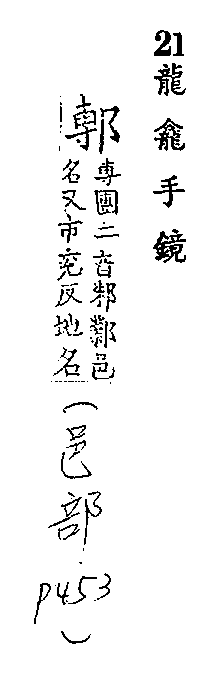 21龍龕手鏡
鄟
專團二音邾邑
名又市兖反地名
(邑部.p453)